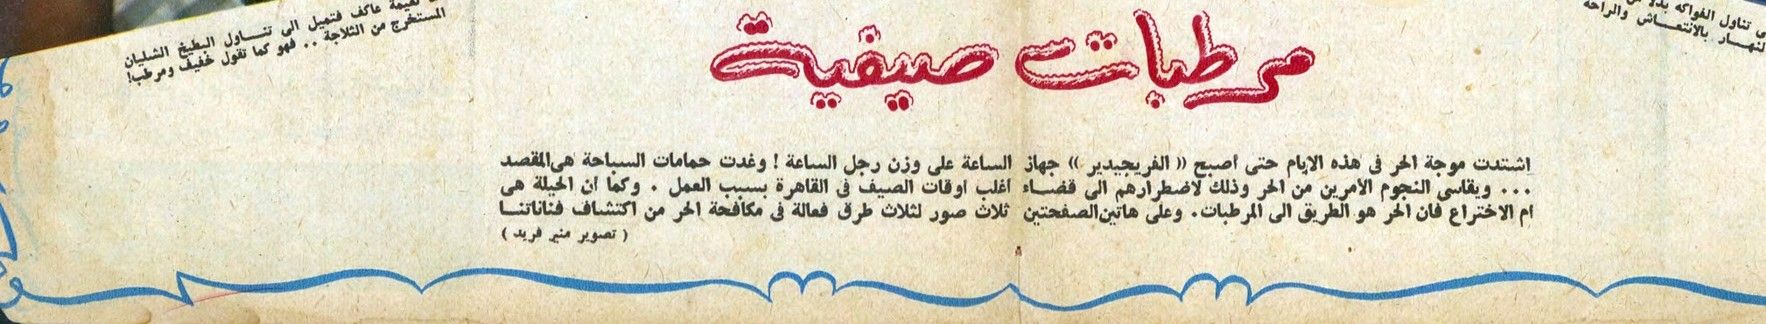 ى تناول الفواكه
النهار بالانتعاش والراحة
مرطبات صيفية
نعيمة عاكف فتميل الى تناول البطيخ الشليان
المستخرج من الثلاجة .. فهو كما تقول خفيف ومرطب!
اشتدت موجة الحر فى هذه الايام حتى اصبح (( الفريجيدير )) جهاز الساعة على وزن رجل الساعة ! وغدت حمامات السباحة هى المقصد
... ويقاسى النجوم الامرين من الحر وذلك لاضطرارهم الى قضاء اغلب اوقات الصيف فى القاهرة بسبب العمل . وكما ان الحيلة هى
ام الاختراع فان الحر هو الطريق الى المرطبات. وعلى هاتين الصفحتين ثلاث صور لثلاث طرق فعالة فى مكافحة الحر من اكتشاف فناناتنا
( تصوير منير فريد )